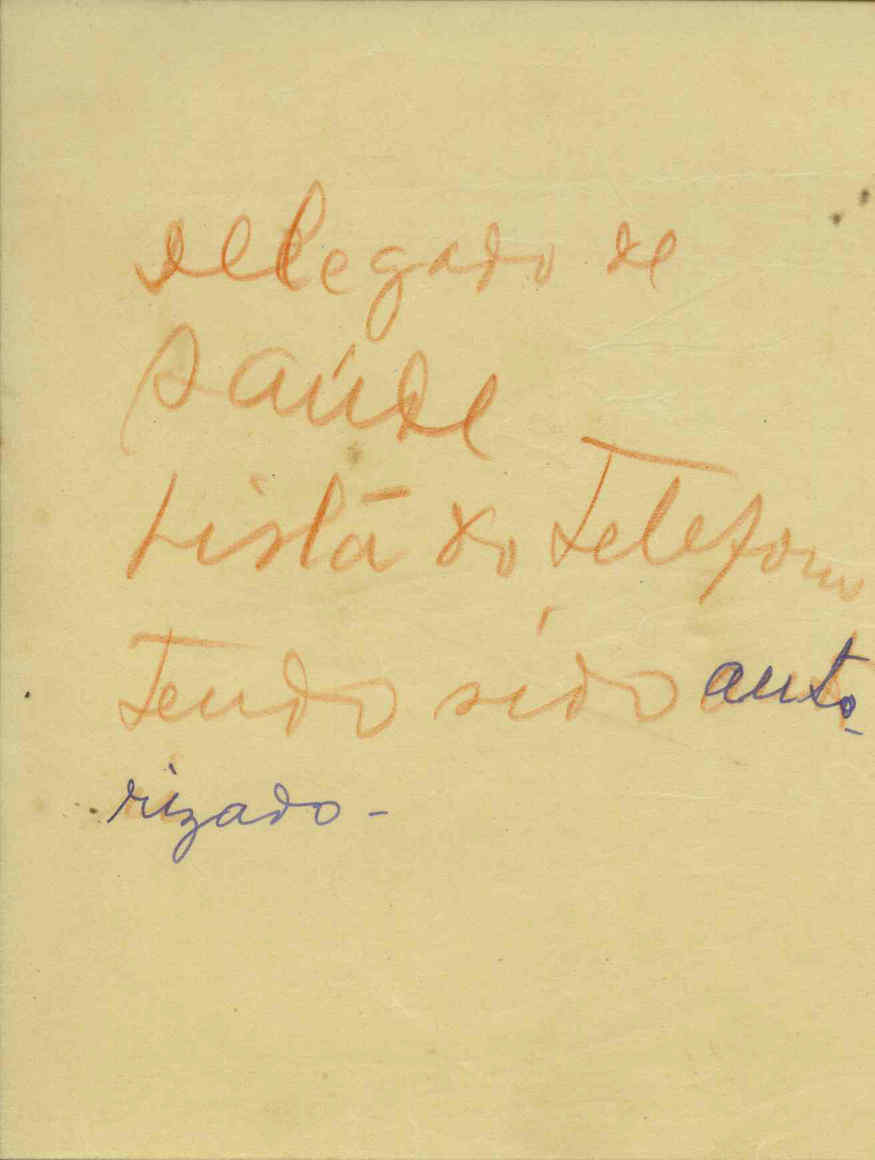 Delegado de
saúde
Lista do Telefone
Tendo sido auto-
rizado -